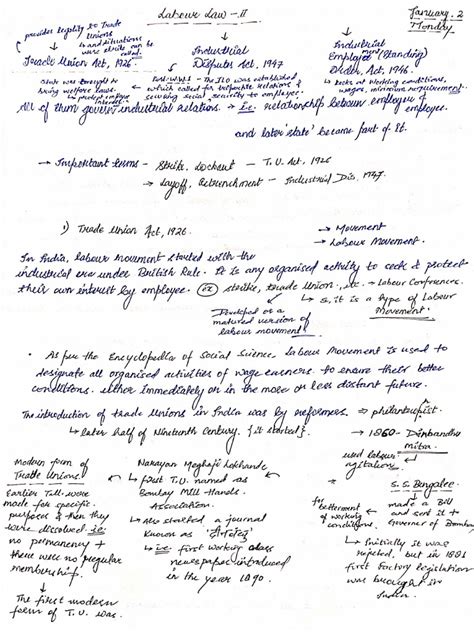 Labour Law - II
January - 2
Monday
provides legality to Trade Unions
↳ and situations were strike can be called.
Trade Union Act, 1926
Industrial Disputes Act, 1947
Industrial Employment (Standing) Order Act, 1946.
State was brought to bring welfare laws.
to protect employee interest.
The ILO was established which called for
security to employee.
↳ looks at working conditions, wages, minimum requirement.
All of them govern industrial relations. → i.e. relationship between employer & employee.
and later 'state' became part of it.
→ Important terms - Strike, Lockout - T.U. Act, 1926
→ Layoff, Retrenchment - Industrial Dis. 1947.
1) Trade Union Act, 1926.
→ Movement
→ Labour Movement.
In India, labour movement started with the
industrial era under British Rule. It is any organised activity to seek & protect
their own interest by employee. ex strike, trade union, etc.
→ Labour Conferences.
↳ So, it is a type of Labour Movement.
Developed or a matured version of labour movement
• As per the Encyclopedia of Social Science Labour Movement is used to
designate all organised activities of wage earners to ensure their better
conditions. either immediately or in the more or less distant future.
The introduction of trade unions in India was by reformers. → philanthropist.
↳ later half of Nineteenth Century. {it started}.
→ 1860 - Dinbandhu Mitra.
used labour agitations
Modern form of Trade Unions.
Earlier T.U. were
made for specific
purposes & then they
were dissolved i.e.
no permanency &
there were no regular
memberships.
The first modern
form of T.U. was.
Narayan Meghaji Lokhande
↳ first T.U. named as
Bombay Mill Hands
Association.
→ He started a journal
known as
↳ i.e. first working class
newspaper introduced
in the year 1890.
→ S.S. Bengalee.
for betterment of working conditions.
made a Bill
and sent it to
Governor of Bombay
↳ Initially it was
rejected, but in 1881
first Factory legislation
was brought in
India.